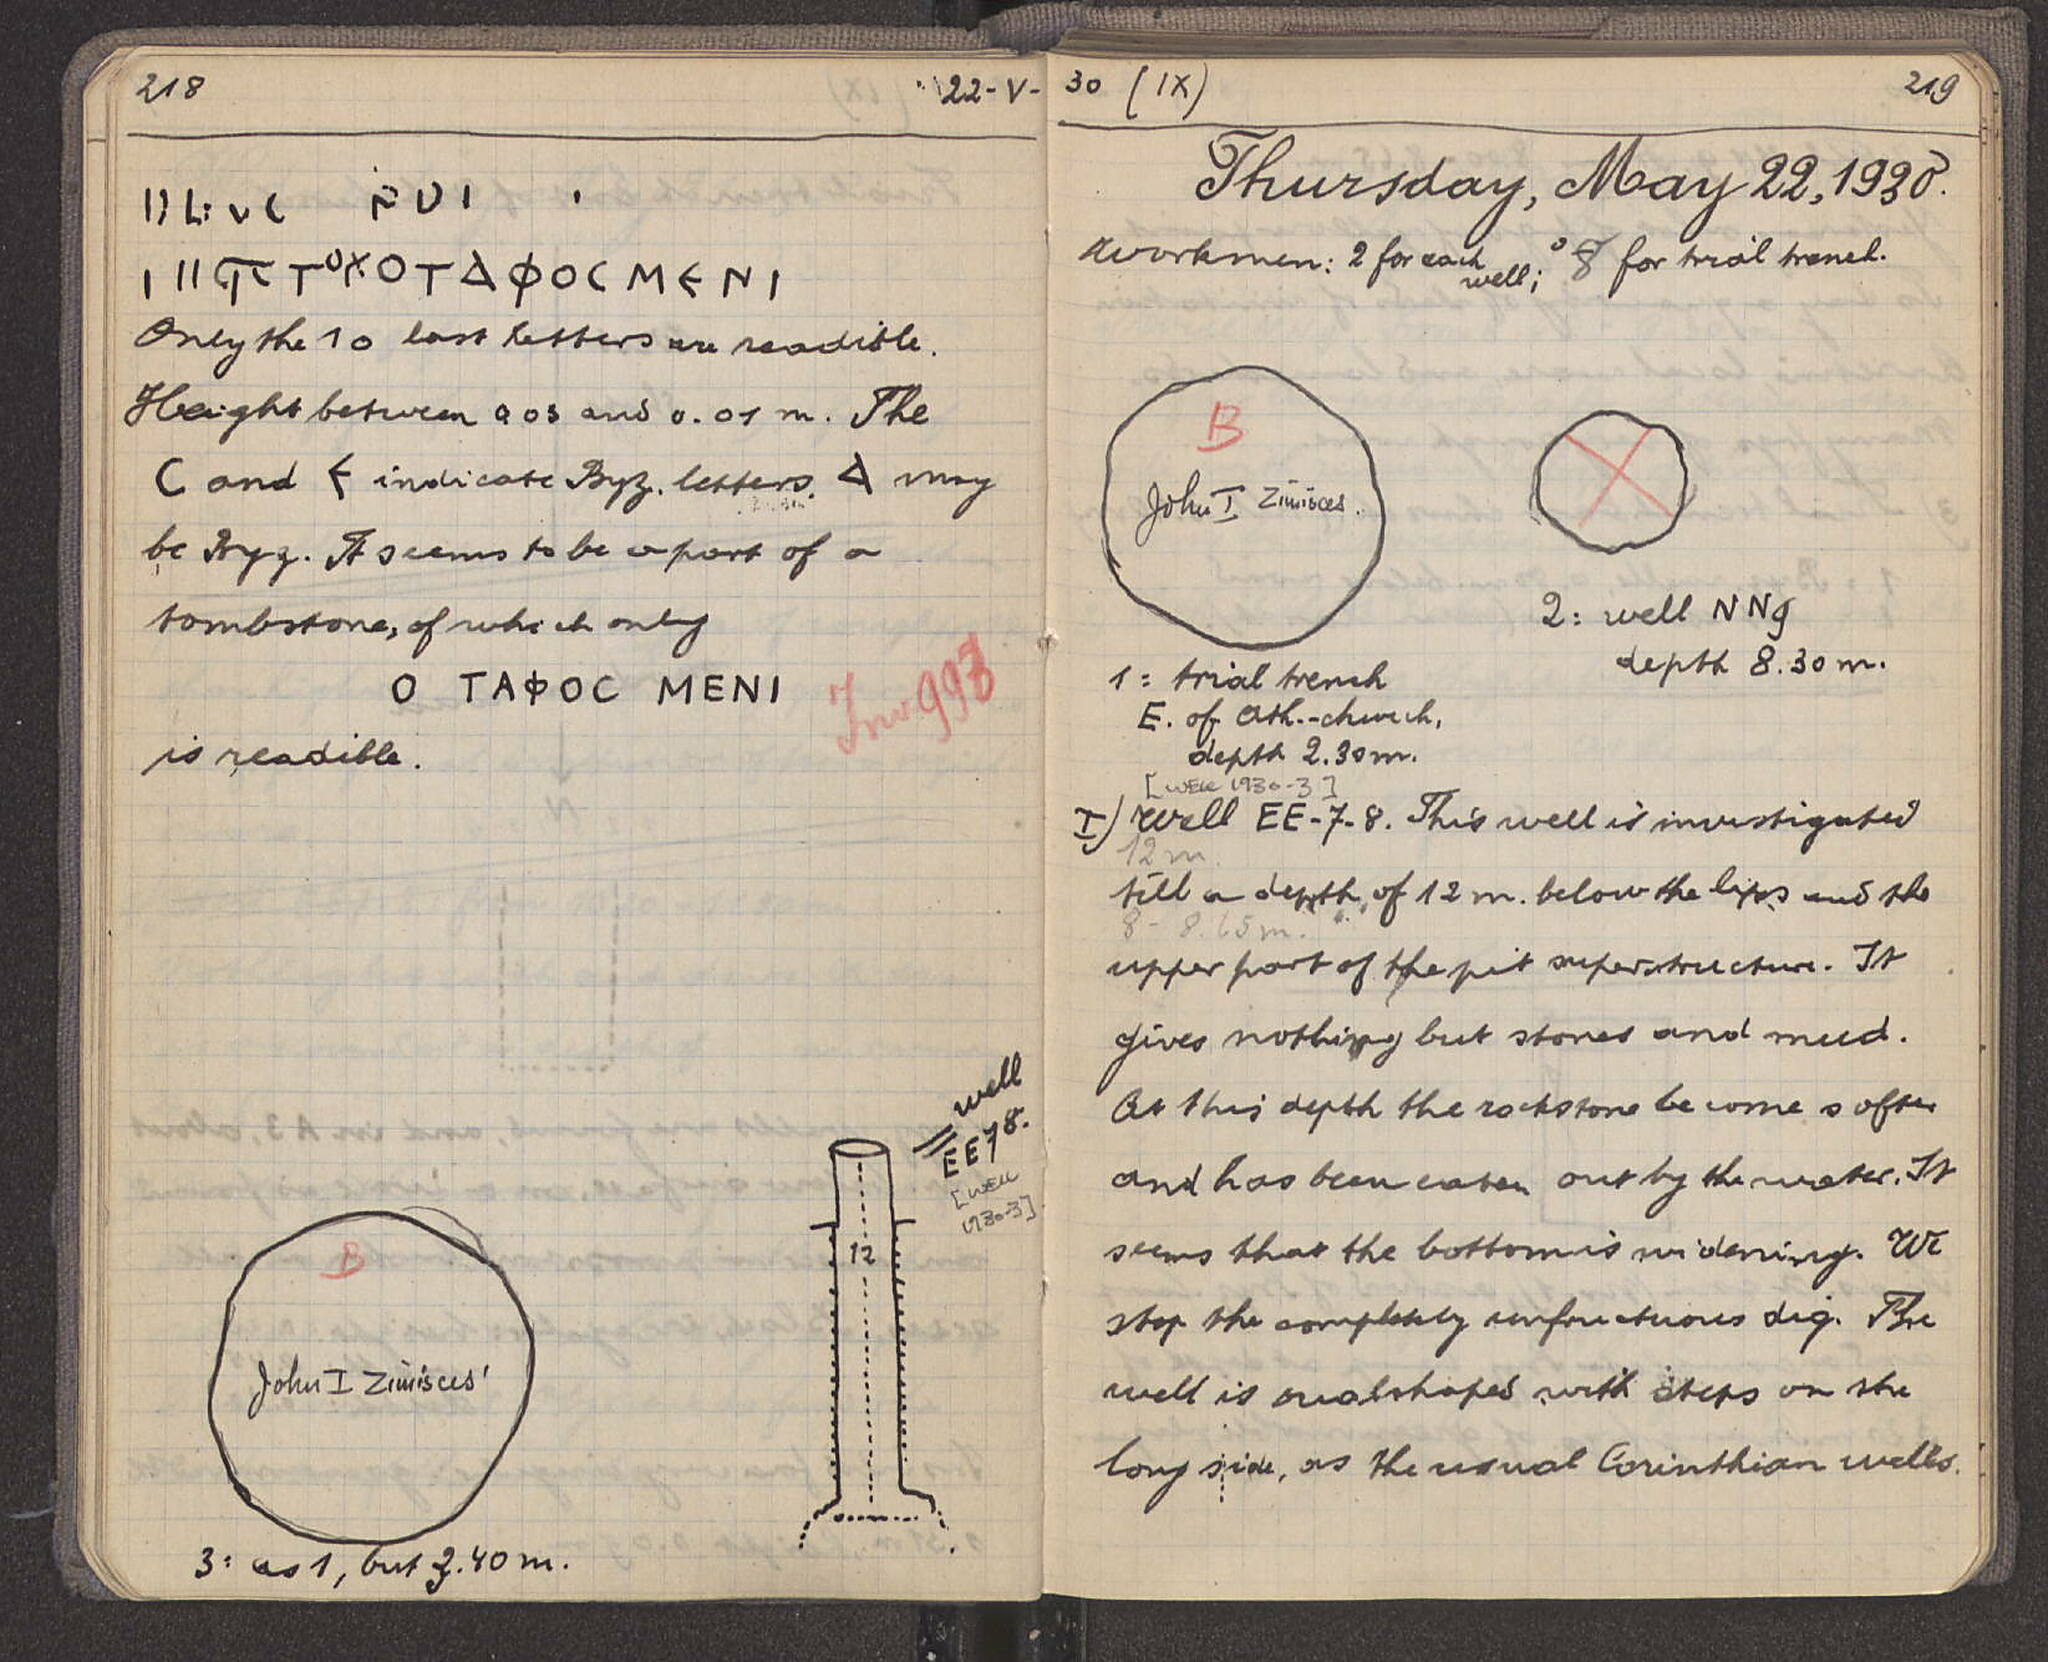 218
22-V-
ΟΤΑΦΟC ΜЄΝΙ
Only the 10 last letters are readible.
Height between 0.03 and 0.01 m. The
C and Є indicate Byz. letters. Δ may
be Byz. It seems to be a part of a
tombstone, of which only
Ο ΤΑΦΟC ΜΕΝΙ
Inv 993
is readible.
well
EE78.
[WELL
1930-3]
12
B
John I Zimisces'
3: as 1, but 2.40 m.
30 (IX)
219
Thursday, May 22, 1930.
Workmen: 2 for each well; 8 for trial trench.
B
John I Zimisces.
2: well NN9
depth 8.30 m.
1: trial trench
E. of Ath.-church,
depth 2.30 m.
[WELL 1930-3]
I) Well EE-7-8. This well is investigated
12 m.
till a depth of 12 m. below the lips and the
8 - 8.65 m.
upper part of the pit superstructure. It
gives nothing but stones and mud.
At this depth the rockstone become softer
and has been eaten out by the water. It
seems that the bottom is widening. We
stop the completely unfructuous dig. The
well is ovalshaped with steps on the
long side, as the usual Corinthian wells.